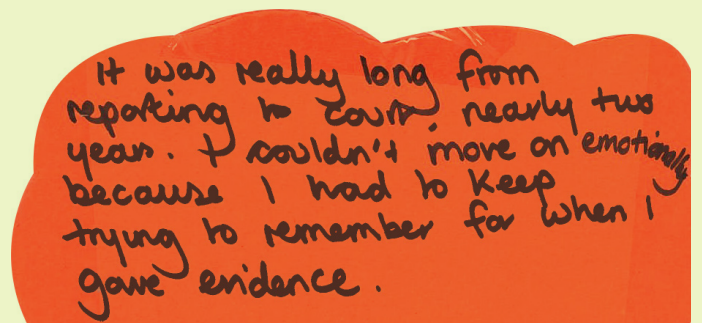 It was really long from
reporting to court, nearly two
years. I couldn't move on emotionally
because I had to keep
trying to remember for when I
gave evidence.